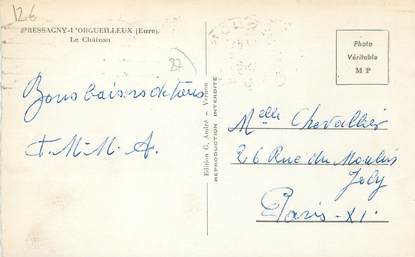 126
PRESSAGNY-L'ORGUEILLEUX (Eure).
Le Château
22
Bons baisers de tous
T. M-M. A.
Edition G. André - Vernon
REPRODUCTION INTERDITE
Photo
Véritable
M P
Melle Chevallier
26 Rue du Moulin
Joly
Paris-XI.